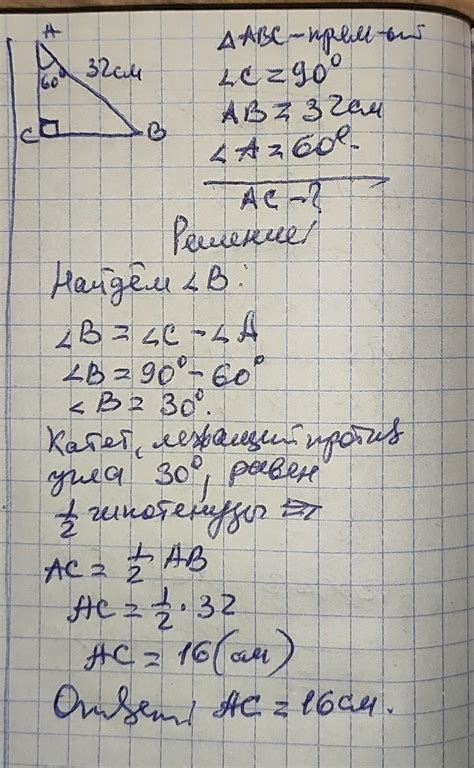 A
60°
32см
C
B
△ABC – прям-ый
∠C = 90°
AB = 32см
∠A = 60°.
AC – ?
Решение:
Найдём ∠B:
∠B = ∠C – ∠A
∠B = 90° – 60°
∠B = 30°.
Катет, лежащий против
угла 30°, равен
1/2 гипотенузы ⇒
AC = 1/2 AB
AC = 1/2 · 32
AC = 16 (см)
Ответ: AC = 16см.